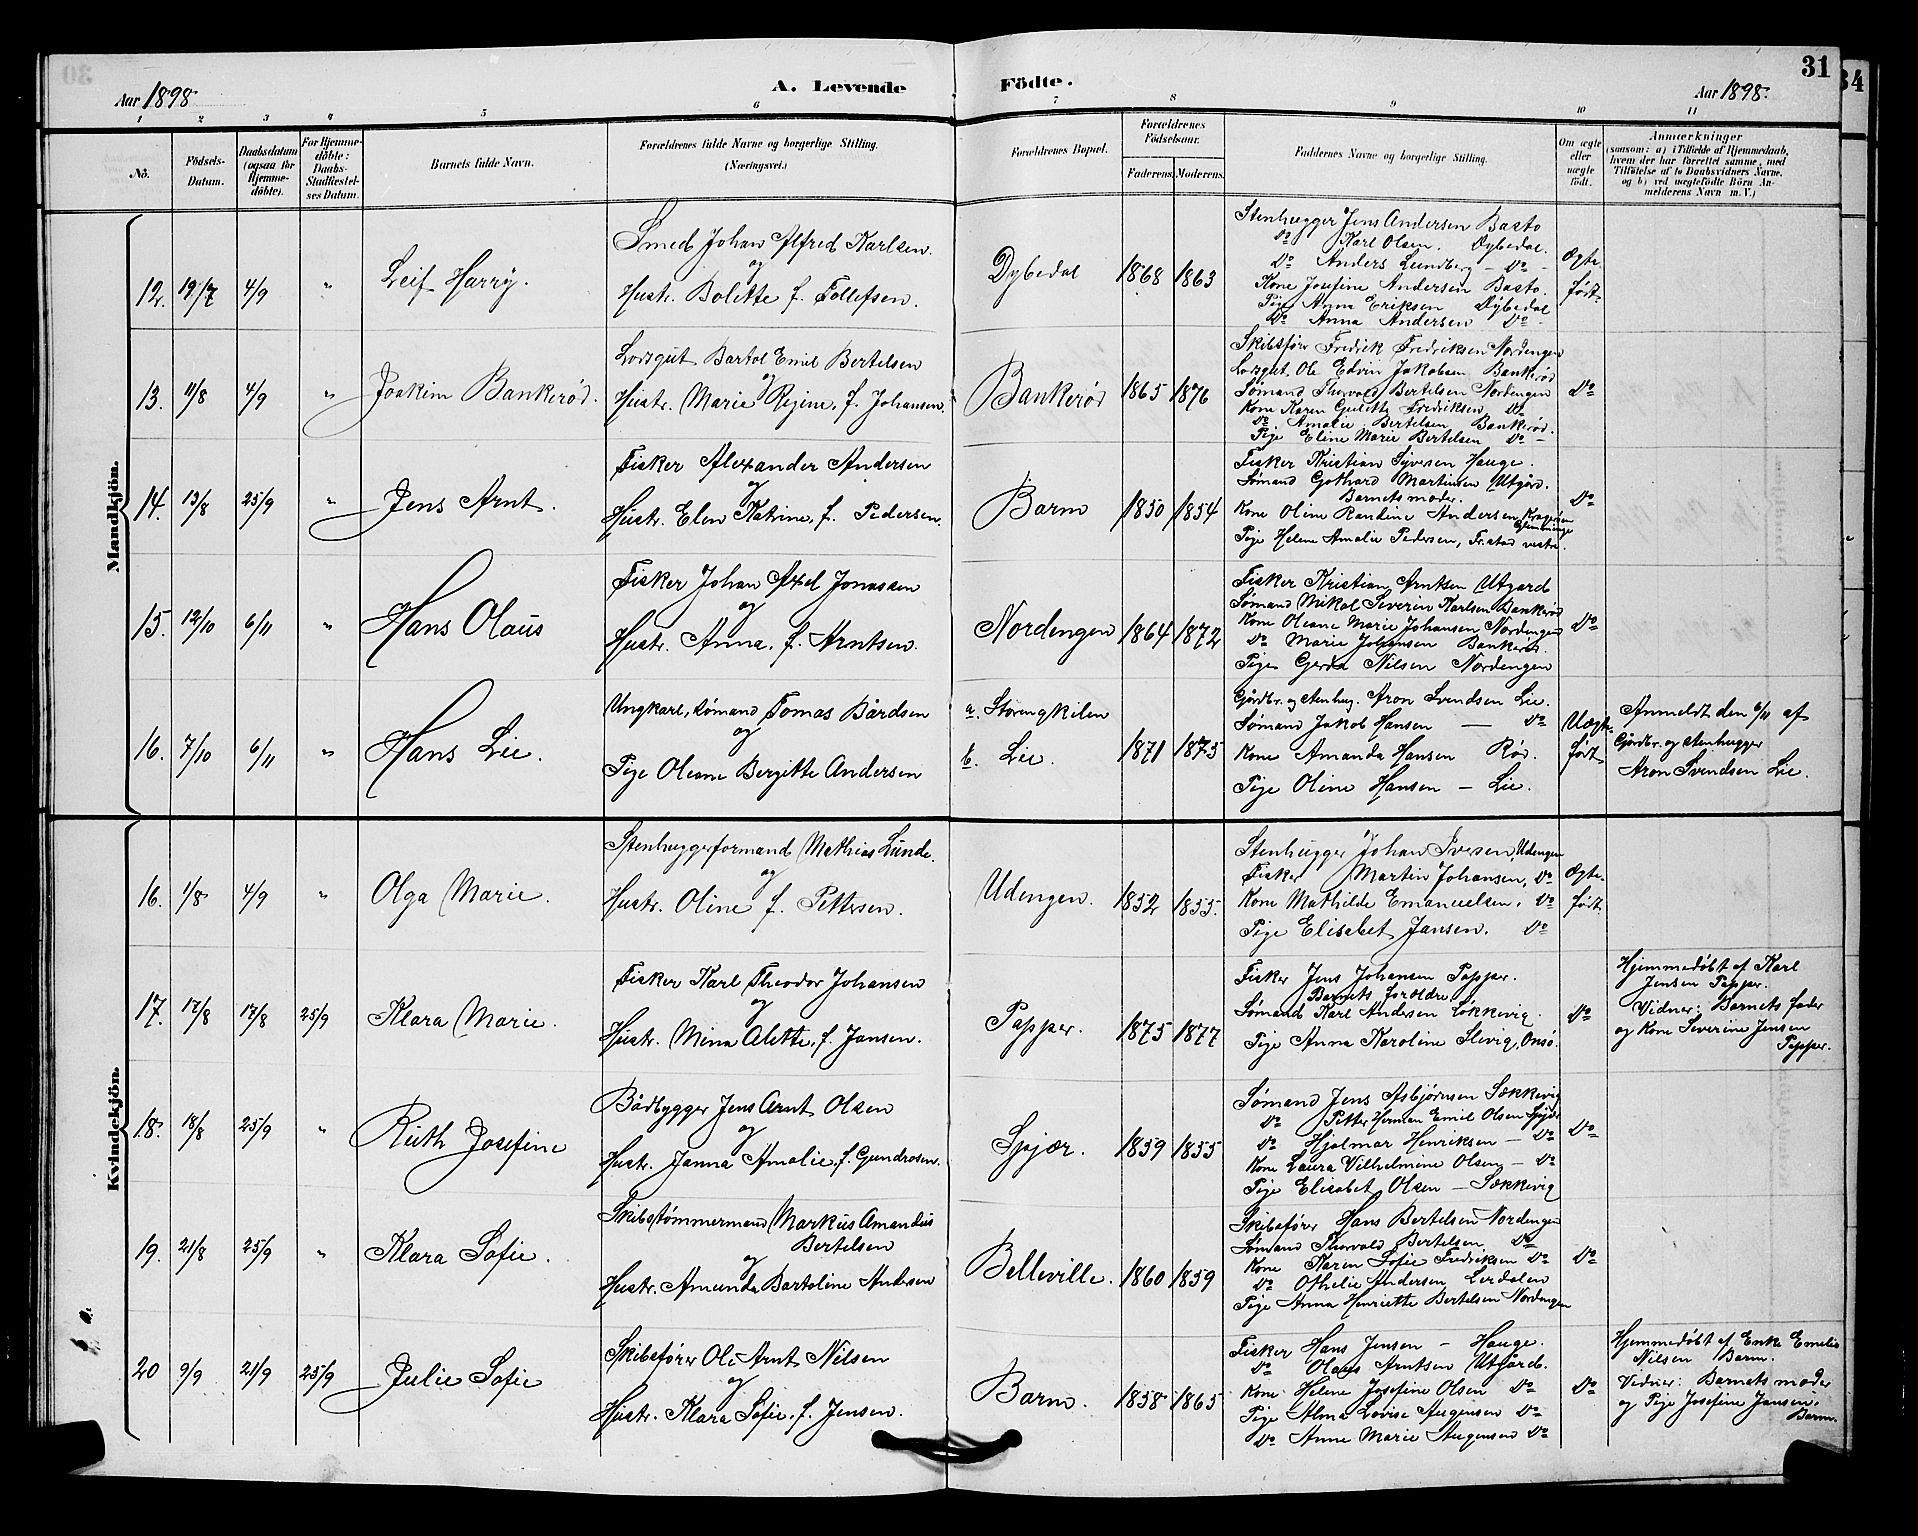 31
34
Aar 1898.
A. Levende
Födte.
Aar 1898.
1 2 3 4 5 6 7 8 9 10 11
No.
Födsels-
Datum.
Daabsdatum
(ogsaa for
Hjemme-
döbte).
For Hjemme-
döbte:
Daabs-
Stadfæstel-
ses Datum.
Barnets fulde Navn.
Forældrenes fulde Navne og borgerlige Stilling.
(Næringsvei.)
Forældrenes Bopæl.
Forældrenes
Födselsaar.
Faderens. Moderens.
Faddernes Navne og borgerlige Stilling.
Om ægte
eller
uægte
født.
Anmærkninger
(saasom: a) i Tilfælde af Hjemmedaab,
hvem der har forrettet samme, med
Tilføielse af to Daabsvidners Navne.
og b) ved uægtefödte Börn An-
melderens Navn m. V.)
Mandkjön.
12. 19/7 4/9 "
Leif Harry.
Smed Johan Alfred Karlsen.
og
Hustr. Bolette f. Tollefsen.
Dybedal 1868 1863
Stenhugger Jens Andersen Basto
Do Karl Olsen. Dybedal.
Do Anders Lundberg - Do -
Kone Josefine Andersen Basto.
Pige Anna Eriksen Dybedal
Do Anna Andersen Do -
Ægte-
født
13. 11/8 4/9 "
Joakim Bankerød.
Lodsgut Bartol Emil Bertelsen
og
Hustr. Marie Regine, f. Johansen.
Bankerød 1865 1876
Skibsfører Fredrik Fredriksen Nordengen
Lodsgut Ole Edvin Jakobsen Bankerød
Sømand Thorvald Bertelsen Nordengen
Kone Karen Gulette Fredriksen Do
Do Amalie Bertelsen Bankerød.
Pige Eline Marie Bertelsen Do -
Do
14. 13/8 25/9 "
Jens Arnt.
Fisker Alexander Andersen
og
Hustr. Elen Katrine, f. Pedersen.
Barm 1850 1854
Fisker Kristian Syversen Hauge.
Sømand Gothard Martinsen Utgård.
Barnets moder.
Kone Oline Randine Andersen, Kragerøen
Pige Helene Amalie Pedersen, Fr.stad vestre.
Do
15. 12/10 6/11 "
Hans Olaüs
Fisker Johan Axel Jonassen
og
Hustr. Anna, f. Arntsen.
Nordengen 1864 1872
Fisker Kristian Arntsen Utgard
Sømand Mikal Severin Karlsen Bankerød
Kone Oleane Marie Johansen Nordengen
Do Marie Johansen Bankerød.
Pige Gerda Nilsen Nordengen
Do
16. 7/10 6/11 "
Hans Lie.
Ungkarl, sømand Tomas Bårdsen
og
Pige Oleane Bergitte Andersen
a. Storengkilen
b. Lie. 1871 1875
Gårdbr. og stenhug. Aron Svendsen Lie.
Sømand Jakob Hansen — Do
Kone Amanda Hansen Rød.
Pige Oline Hansen - Lie.
Uægte-
født
Anmeldt den 6/11 af
Gårdbr. og stenhugger
Aron Svendsen Lie.
Kvindekjön.
16. 1/8 4/9 "
Olga Marie.
Stenhuggerformand Mathias Lunde.
og
Hustr. Oline f. Pettersen.
Udengen. 1852 1855.
Stenhugger Johan Iversen, Udengen
Fisker Martin Johansen, Do
Kone Mathilde Emanuelsen, Do
Pige Elisabet Jansen. Do
Ægte-
født
17. 12/8 17/8 25/9
Klara Marie.
Fisker Karl Theodor Johansen
og
Hustr. Mina Alette, f. Jansen.
Papper. 1875 1877
Fisker Jens Johansen Papper.
Barnets forældre
Sømand Karl Andersen Løkkevig.
Pige Anna Karoline Slevig, Onsø.
Do
Hjemmedøbt af Karl
Jensen Papper.
Vidner: Barnets fader
og Kone Severine Jensen
Papper.
18. 18/8 25/9 "
Ruth Josefine
Bådbygger Jens Arnt Olsen
og
Hustr. Janna Amalie, f. Gundrosen.
Spjær. 1859 1855
Sømand Jens Asbjørnsen Sækkevig
Do Petter Herman Emil Olsen Spjær
Do Hjalmar Henriksen - Do
Kone Laura Vilhelmine Olsen - Do
Pige Elisabet Olsen - Sækkevig
Do
19. 21/8 25/9 "
Klara Sofie.
Skibstømmermand Markus Amandus
Bertelsen
og
Hustr. Amunda Bartoline Andersen
Belleville. 1860 1859
Skibsfører Hans Bertelsen Nordengen
Sømand Thorvald Bertelsen Do
Kone Karen Sofie Fredriksen Do
Do Othelie Andersen Lerdalen
Pige Anna Henriette Bertelsen Nordengen
Do
20 9/9 21/9 25/9
Julie Sofie
Skibsfører Ole Arnt Nilsen
og
Hustr. Klara Sofie, f. Jensen.
Barm. 1858 1865
Fisker Hans Jensen - Hauge.
Do Olaus Arntsen Utgård.
Kone Helene Josefine Olsen Do
Pige Alma Lovise Augensen Do
Do Anne Marie Augensen Do
Do
Hjemmedøbt af Enke Emelie
Nilsen Barm.
Vidner: Barnets moder
og Pige Josefine Jansen.
Barm.